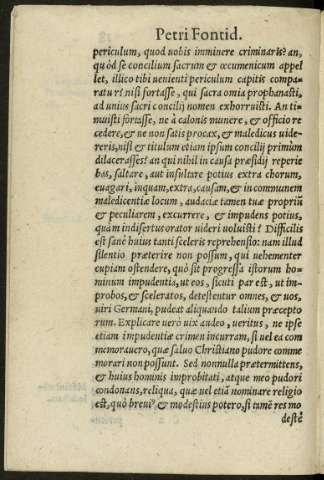 Petri Fontid.
periculum, quod uobis imminere criminaris? an,
quòd se concilium sacrum & œcumenicum appel
let, illico tibi uenienti periculum capitis compa-
ratur? nisi fortasse, qui sacra omia prophanasti,
ad unius sacri concilij nomen exhorruisti. An ti-
muisti fortasse, ne à calonis munere, & officio re
cedere, & ne non satis procax, & maledicus uide-
reris, nisi & titulum etiam ipsum concilij primùm
dilacerasses? an qui nihil in causa præsidij reperie
bas, saltare, aut insultare potius extra chorum,
euagari, inquam, extra, causam, & in communem
maledicentiæ locum, audaciæ tamen tuæ propriũ
& peculiarem, excurrere, & impudens potius,
quàm indisertus orator uideri uoluisti? Difficilis
est sanè huius tanti sceleris reprehensio: nam illud
silentio præterire non possum, qui uehementer
cupiam ostendere, quò sit progressa istorum ho-
minum impudentia, ut eos, sicuti par est, ut im-
probos, & sceleratos, detestentur omnes, & uos,
uiri Germani, pudeat aliquando talium præcepto
rum. Explicare uerò uix audeo, ueritus, ne ipse
etiam impudentiæ crimen incurram, si uel ea com
memorauero, quæ saluo Christiano pudore comme
morari non possunt. Sed nonnulla prætermittens,
& huius hominis improbitati, atque meo pudori
condonans, reliqua, quæ uel etiã nominare religio
est, quò breui9 & modestius potero, si tamẽ res mo
destè